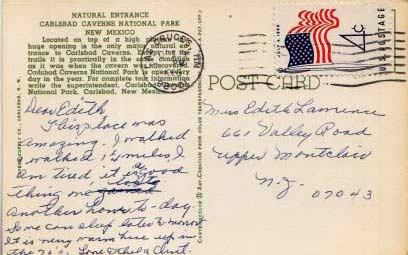 NATURAL ENTRANCE
CARLSBAD CAVERNS NATIONAL PARK
NEW MEXICO
Located on top of a high
huge opening is the only major natural en-
trance to Carlsbad Caverns. Except for the
trails it is practically in the same condition
as it was when the cavern was
Carlsbad Caverns National Park is open every
day in the year. For complete information
write the superintendent, Carlsbad Caverns
National Park, Carlsbad, New Mexico.
4¢
U.S. POSTAGE
POST CARD
Dear Edith,
This place was
amazing. I walked
walked 1¾ miles, I
am tired it is a good
thing
another home to-day.
Some can sleep late to-morrow
It is very warm here up in
the 70's. Love Ethel & Clint.
Miss Edith Lawrence
661 Valley Road
Upper Montclair
N.J.
07043